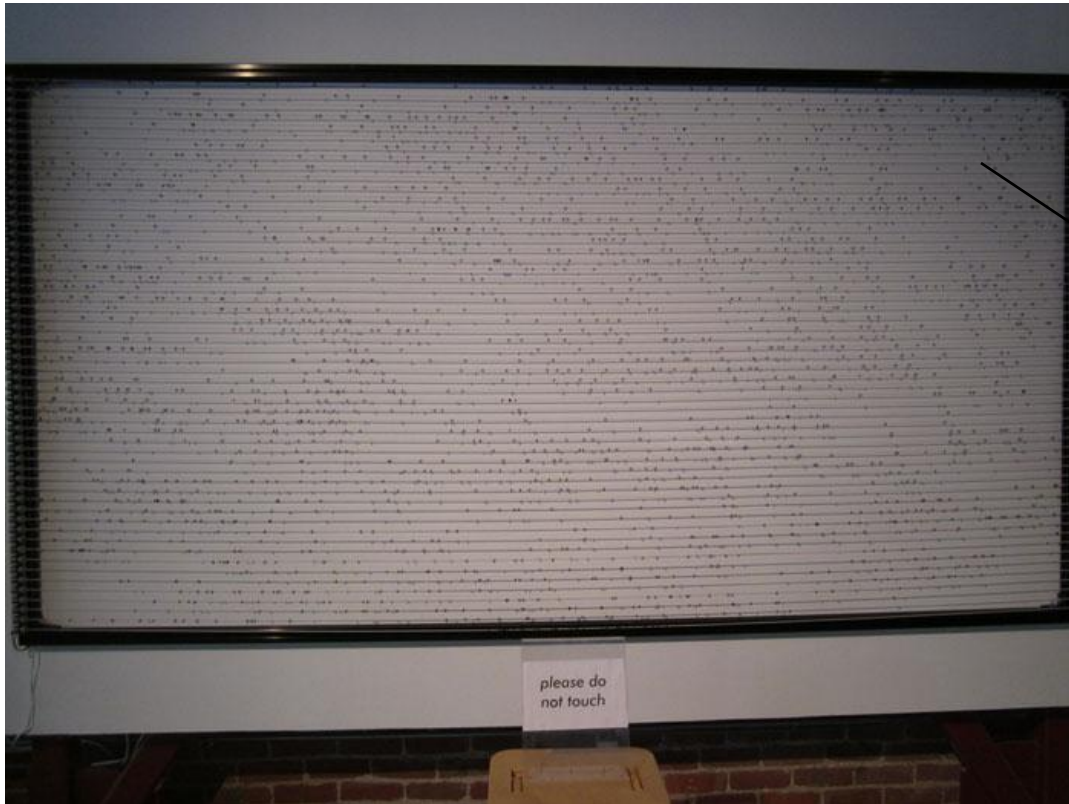 please do
not touch